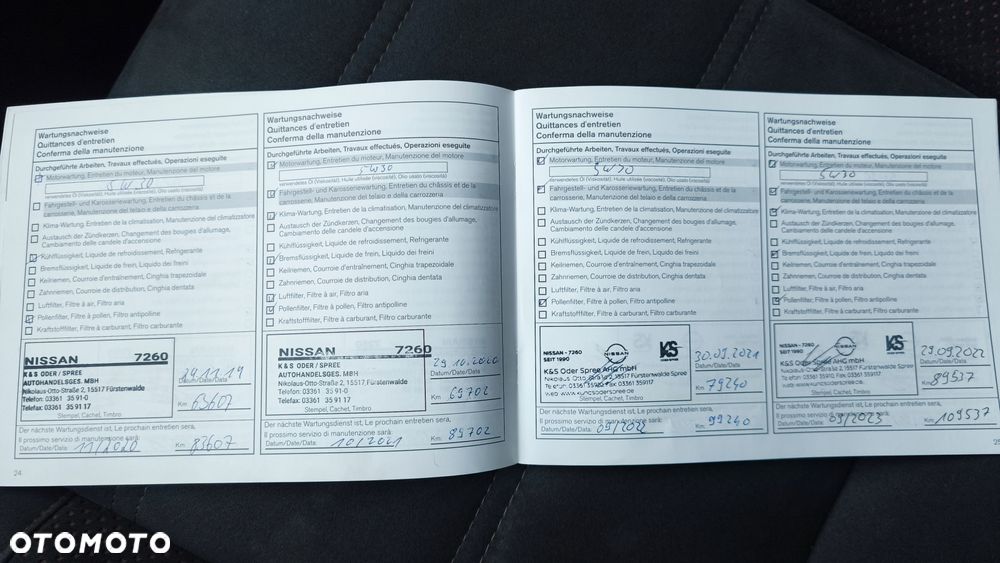 Wartungsnachweise
Quittances d'entretien
Conferma della manutenzione
Durchgeführte Arbeiten, Travaux effectués, Operazioni eseguite
Motorwartung, Entretien du moteur, Manutenzione del motore
5W30
verwendetes Öl (Viskosität), Huile utilisée (viscosité), Olio usato (viscosità)
Fahrgestell- und Karosseriewartung, Entretien du châssis et de la
carrosserie, Manutenzione del telaio e della carrozzeria
Klima-Wartung, Entretien de la climatisation, Manutenzione del climatizzatore
Austausch der Zündkerzen, Changement des bougies d'allumage,
Cambiamento delle candele d'accensione
Kühlflüssigkeit, Liquide de refroidissement, Refrigerante
Bremsflüssigkeit, Liquide de frein, Liquido dei freni
Keilriemen, Courroie d'entraînement, Cinghia trapezoidale
Zahnriemen, Courroie de distribution, Cinghia dentata
Luftfilter, Filtre à air, Filtro aria
Pollenfilter, Filtre à pollen, Filtro antipolline
Kraftstofffilter, Filtre à carburant, Filtro carburante
NISSAN 7260
K&S ODER / SPREE
AUTOHANDELSGES. MBH
Nikolaus-Otto-Straße 2, 15517 Fürstenwalde
Telefon: 03361 35 91-0
Telefax: 03361 35 91 17
Stempel, Cachet, Timbro
29.11.19
Datum/Date/Data
Km 63607
Der nächste Wartungsdienst ist, Le prochain entretien sera,
Il prossimo servizio di manutenzione sarà:
Datum/Date/Data: 11/2020 Km 83607
24
Wartungsnachweise
Quittances d'entretien
Conferma della manutenzione
Durchgeführte Arbeiten, Travaux effectués, Operazioni eseguite
Motorwartung, Entretien du moteur, Manutenzione del motore
5W30
verwendetes Öl (Viskosität), Huile utilisée (viscosité), Olio usato (viscosità)
Fahrgestell- und Karosseriewartung, Entretien du châssis et de la
carrosserie, Manutenzione del telaio e della carrozzeria
Klima-Wartung, Entretien de la climatisation, Manutenzione del climatizzatore
Austausch der Zündkerzen, Changement des bougies d'allumage,
Cambiamento delle candele d'accensione
Kühlflüssigkeit, Liquide de refroidissement, Refrigerante
Bremsflüssigkeit, Liquide de frein, Liquido dei freni
Keilriemen, Courroie d'entraînement, Cinghia trapezoidale
Zahnriemen, Courroie de distribution, Cinghia dentata
Luftfilter, Filtre à air, Filtro aria
Pollenfilter, Filtre à pollen, Filtro antipolline
Kraftstofffilter, Filtre à carburant, Filtro carburante
NISSAN 7260
K&S ODER / SPREE
AUTOHANDELSGES. MBH
Nikolaus-Otto-Straße 2, 15517 Fürstenwalde
Telefon: 03361 35 91-0
Telefax: 03361 35 91 17
Stempel, Cachet, Timbro
29.10.2020
Datum/Date/Data
Km 69702
Der nächste Wartungsdienst ist, Le prochain entretien sera,
Il prossimo servizio di manutenzione sarà:
Datum/Date/Data: 10/2021 Km 89702
Wartungsnachweise
Quittances d'entretien
Conferma della manutenzione
Durchgeführte Arbeiten, Travaux effectués, Operazioni eseguite
Motorwartung, Entretien du moteur, Manutenzione del motore
5W30
verwendetes Öl (Viskosität), Huile utilisée (viscosité), Olio usato (viscosità)
Fahrgestell- und Karosseriewartung, Entretien du châssis et de la
carrosserie, Manutenzione del telaio e della carrozzeria
Klima-Wartung, Entretien de la climatisation, Manutenzione del climatizzatore
Austausch der Zündkerzen, Changement des bougies d'allumage,
Cambiamento delle candele d'accensione
Kühlflüssigkeit, Liquide de refroidissement, Refrigerante
Bremsflüssigkeit, Liquide de frein, Liquido dei freni
Keilriemen, Courroie d'entraînement, Cinghia trapezoidale
Zahnriemen, Courroie de distribution, Cinghia dentata
Luftfilter, Filtre à air, Filtro aria
Pollenfilter, Filtre à pollen, Filtro antipolline
Kraftstofffilter, Filtre à carburant, Filtro carburante
NISSAN - 7260
SEIT 1990
NISSAN
K&S
K&S Oder Spree AHG mbH
Nikolaus Otto Straße 2, 15517 Fürstenwalde
www.kundsoderspree.de
Stempel, Cachet, Timbro
30.09.2021
Datum/Date/Data
Km 79240
Der nächste Wartungsdienst ist, Le prochain entretien sera,
Il prossimo servizio di manutenzione sarà:
Datum/Date/Data: 09/2022 Km 99240
Wartungsnachweise
Quittances d'entretien
Conferma della manutenzione
Durchgeführte Arbeiten, Travaux effectués, Operazioni eseguite
Motorwartung, Entretien du moteur, Manutenzione del motore
5W30
verwendetes Öl (Viskosität), Huile utilisée (viscosité), Olio usato (viscosità)
Fahrgestell- und Karosseriewartung, Entretien du châssis et de la
carrosserie, Manutenzione del telaio e della carrozzeria
Klima-Wartung, Entretien de la climatisation, Manutenzione del climatizzatore
Austausch der Zündkerzen, Changement des bougies d'allumage,
Cambiamento delle candele d'accensione
Kühlflüssigkeit, Liquide de refroidissement, Refrigerante
Bremsflüssigkeit, Liquide de frein, Liquido dei freni
Keilriemen, Courroie d'entraînement, Cinghia trapezoidale
Zahnriemen, Courroie de distribution, Cinghia dentata
Luftfilter, Filtre à air, Filtro aria
Pollenfilter, Filtre à pollen, Filtro antipolline
Kraftstofffilter, Filtre à carburant, Filtro carburante
NISSAN - 7260
SEIT 1990
NISSAN
K&S
K&S Oder Spree AHG mbH
Stempel, Cachet, Timbro
29.09.2022
Datum/Date/Data
Km 89537
Der nächste Wartungsdienst ist, Le prochain entretien sera,
Il prossimo servizio di manutenzione sarà:
Datum/Date/Data: 09/2023 Km 109537
25
OTOMOTO